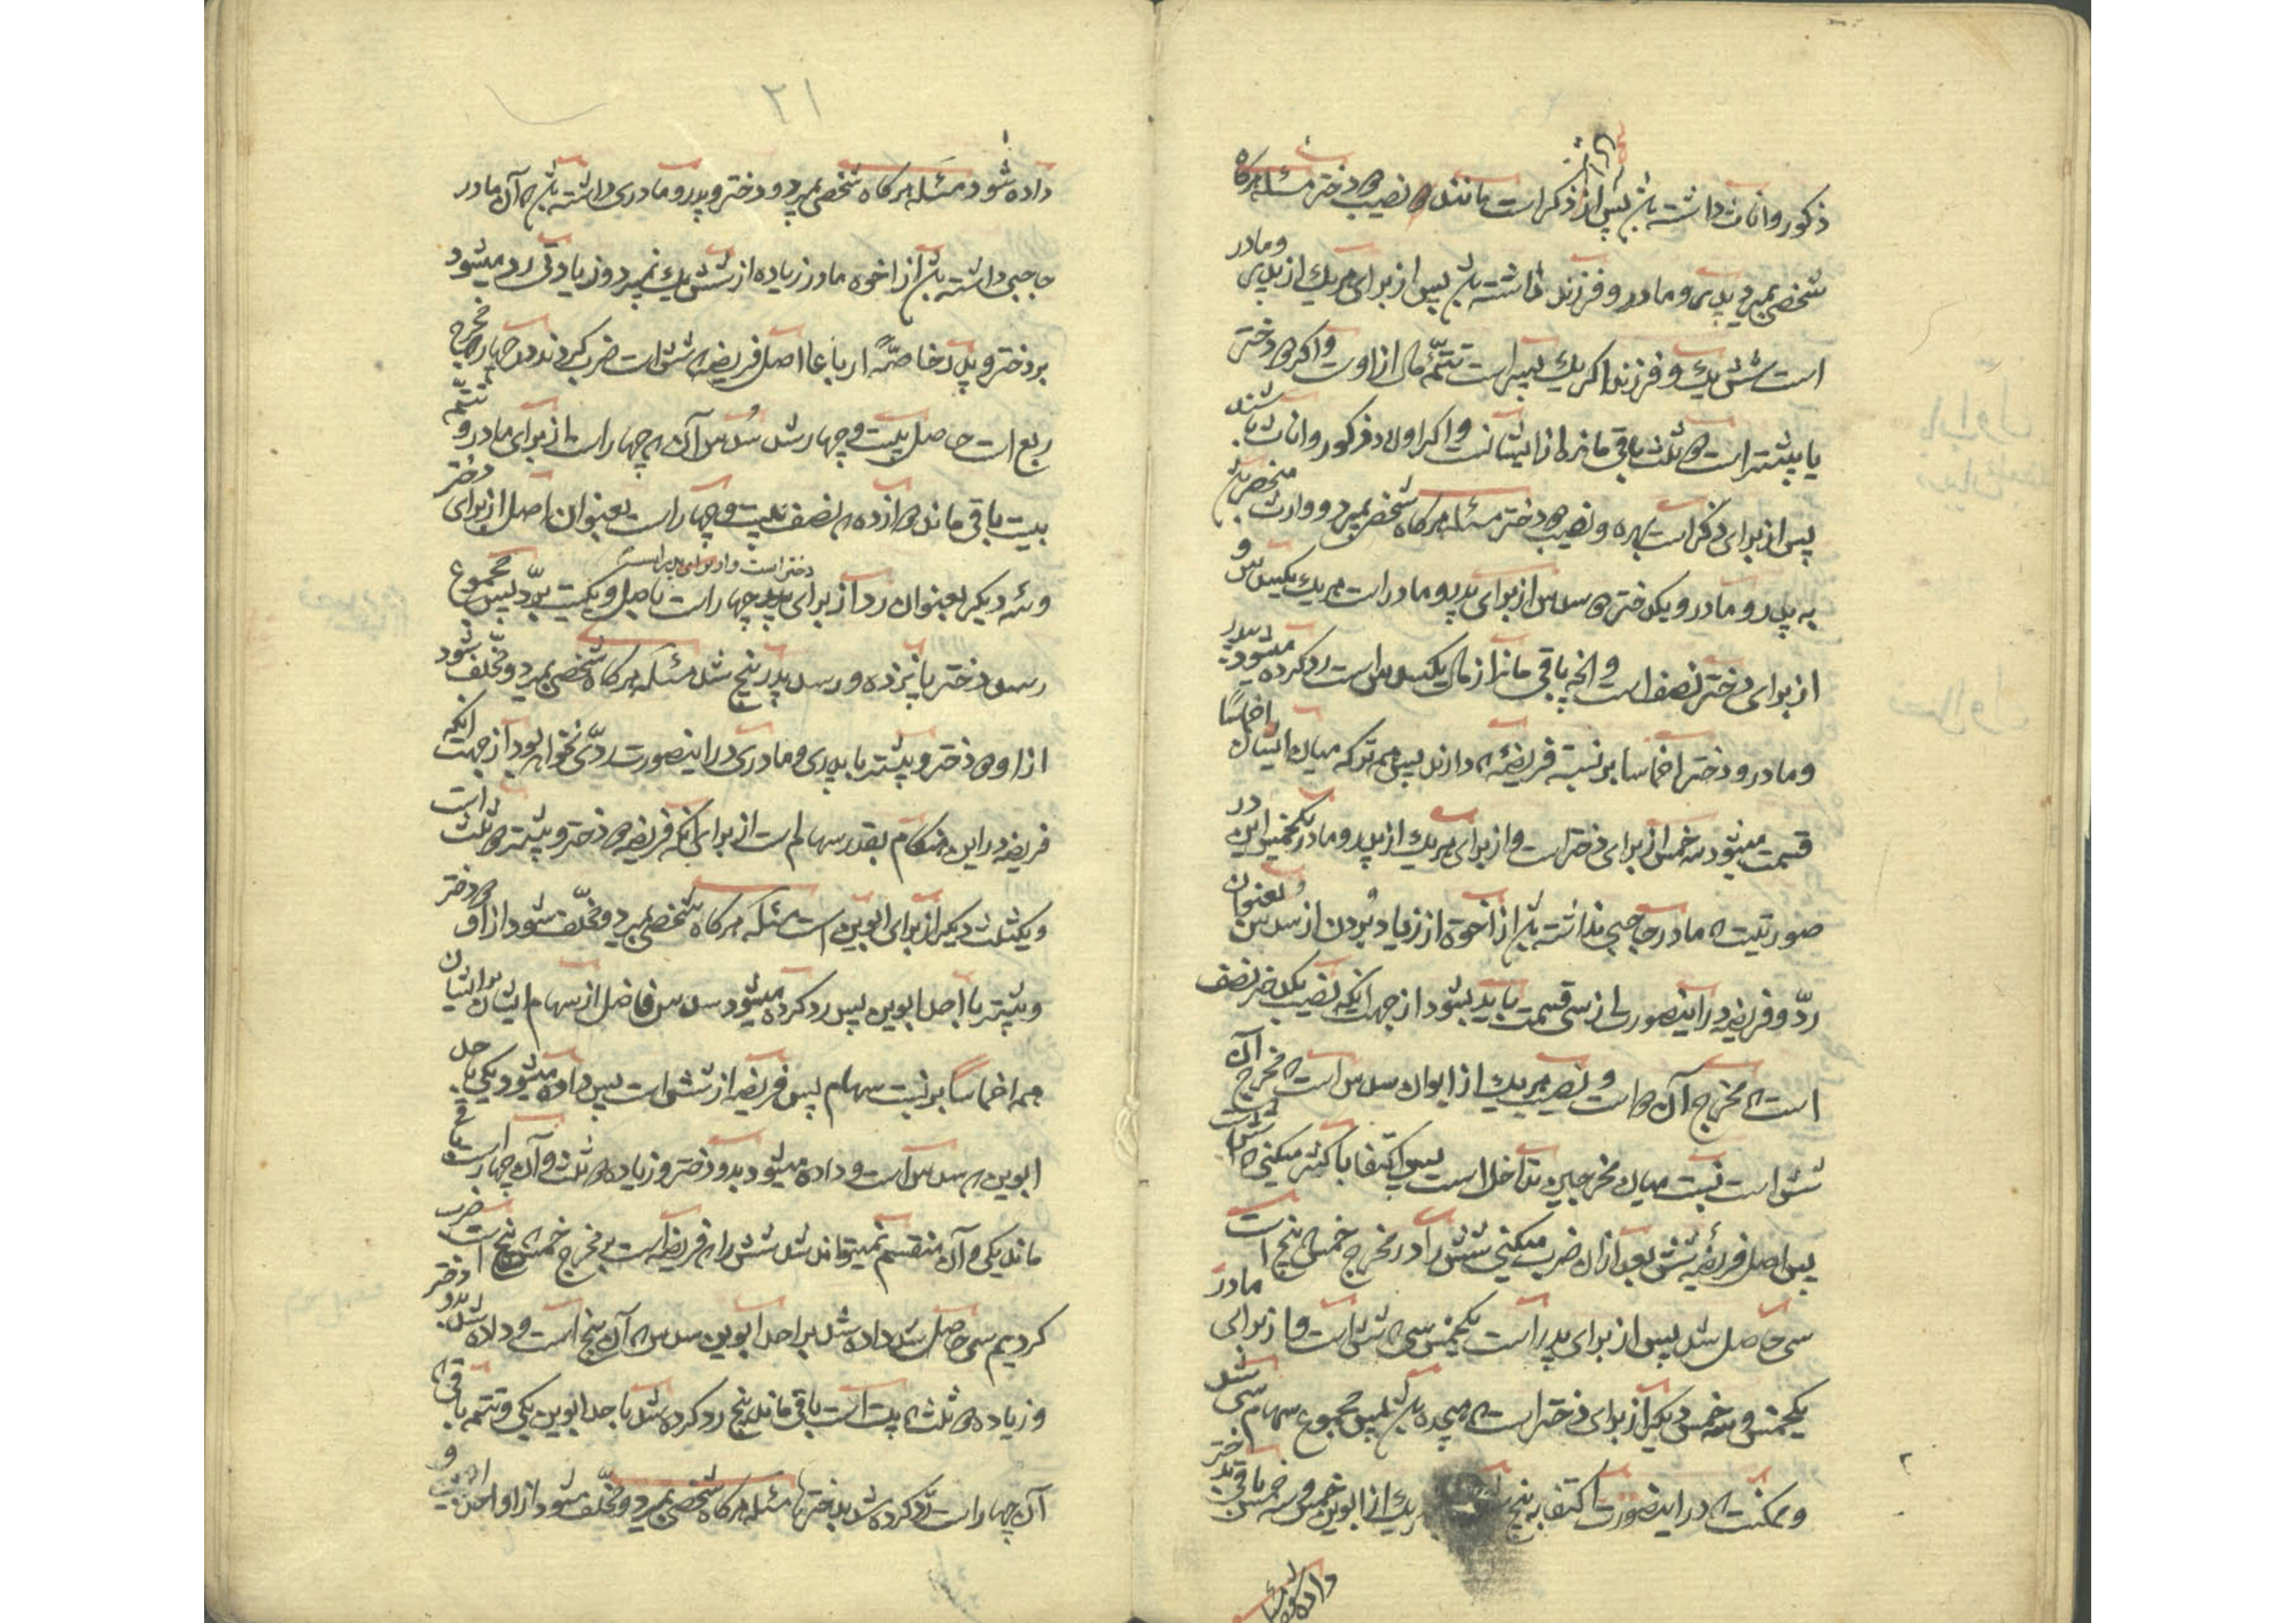 ذکور و اناث داشته باشد پس از ذکر است مانند دو نصیب دو دختر مسئله هرگاه
شخصی بمیرد پدری و مادر و فرزند داشته باشد پس از برای هر یک از پدری و مادر
است شش یک و فرزند اگر یک پسر است تتمّه مال از اوست و اگر دو دختر
یا بیشتر است دو ثلث باقی مانده از ایشانست و اگر اولاد ذکور و اناث باشند
پس از برای ذکر است بهره و نصیب دو دختر مسئله هرگاه شخصی بمیرد و وارث منحصر باشد
به پدر و مادر و یکدختر دو سدس از برای پدر و مادر است هر یک یکسدس و
از برای دختر نصف است و آنچه باقی ماند از مال یکسدس است رد کرده میشود بپدر
و مادر و دختر اخماسا بر نسبة فریضه که دارند پس همه ترکه میان ایشان اخماسًا
قسمت میشود سه خمس از برای دختر است و از برای هر یک از پدر و مادر یکخمس این در
صورتیست که مادر حاجبی نداشته باشد از اخوة از زیاد بُردن از سدس بعنوان
ردّ و فریضه در اینصورت از سی قسمت باید بشود از جهت آنکه نصیب یکدختر نصف
است که مخرج آن دو است و نصیب هر یک از ابوان سدس است که مخرج آن
شش است نسبت میان مخرجین تداخل است پس اکتفا باکثر میکنی که شش است
پس اصل فریضه شش بعد از آن ضرب میکنی شش را در مخرج خمس که پنج است
سی حاصل شد پس از برای پدر است یکخمس سی که شش است و از برای مادر
یکخمس و سه خمس دیگر از برای دختر است که هیجده باشد پس مجموع سهام سی شد
و ممکنست که در اینصورت اکتفا به پنج یک از ابوین خمس و سه خمس باقی بدختر
داده شود
۲۱
داده شود مسئله هرگاه شخصی بمیرد و دختر و پدر و مادری داشته باشد که آن مادر
حاجبی داشته باشد از اخوه مادر زیاده از شش یک نمیبرد و زیادتی رد میشود
بر دختر و پدر خاصّةً ارباعا اصل فریضه که شش است ضرب کردند در چهار که مخرج
ربع است حاصل بیست و چهار شد سُدس آن که چهار است از برای مادر و تتمّه
بیست باقی ماند دوازده که نصف بیست و چهار است بعنوان اصل از برای دختر
دختر است و از برای پدر است
و سه دیگر بعنوان رد از برای پدر چهار است باصل و یکیست بردّ پس مجموع
رسد دختر پانزده و رسد پدر پنج شد مسئله هرگاه شخصی بمیرد و مخلّف شود
از او دو دختر و بیشتر با پدری و مادری در اینصورت ردّی نخواهد بود از جهت آنکه
فریضه در این هنگام بقدر سهام است از برای آنکه فریضه دو دختر و بیشتر دو ثلث است
و یکثلث دیگر از برای ابوین است مسئله هرگاه شخصی بمیرد و مخلّف شود از او دو دختر
و بیشتر با احد ابوین پس رد کرده میشود سدس فاضل از سهام ایشان بر ایشان
همه اخماسًا بر نسبت سهام پس فریضه از شش است پس داده میشود یکی باحد
ابوین که سدس است و داده میشود بدو دختر و زیاده دو ثلث و آن چهار است باقی
ماند یکی و آن منقسم نمیتواند شد شش را که فریضه است بمخرج خمس که پنج است ضرب
کردیم سی حاصل شد داده شد بر احد ابوین سدس که آن پنج است و داده شد بدو دختر
و زیاده دو ثلث که بیست است باقی ماند پنج رد کرده شد باحد ابوین یکی و تتمه باقی که
آن چهار است رد کرده شد بدخترها مسئله هرگاه شخصی بمیرد و مخلّف شود از او احد ابوین و